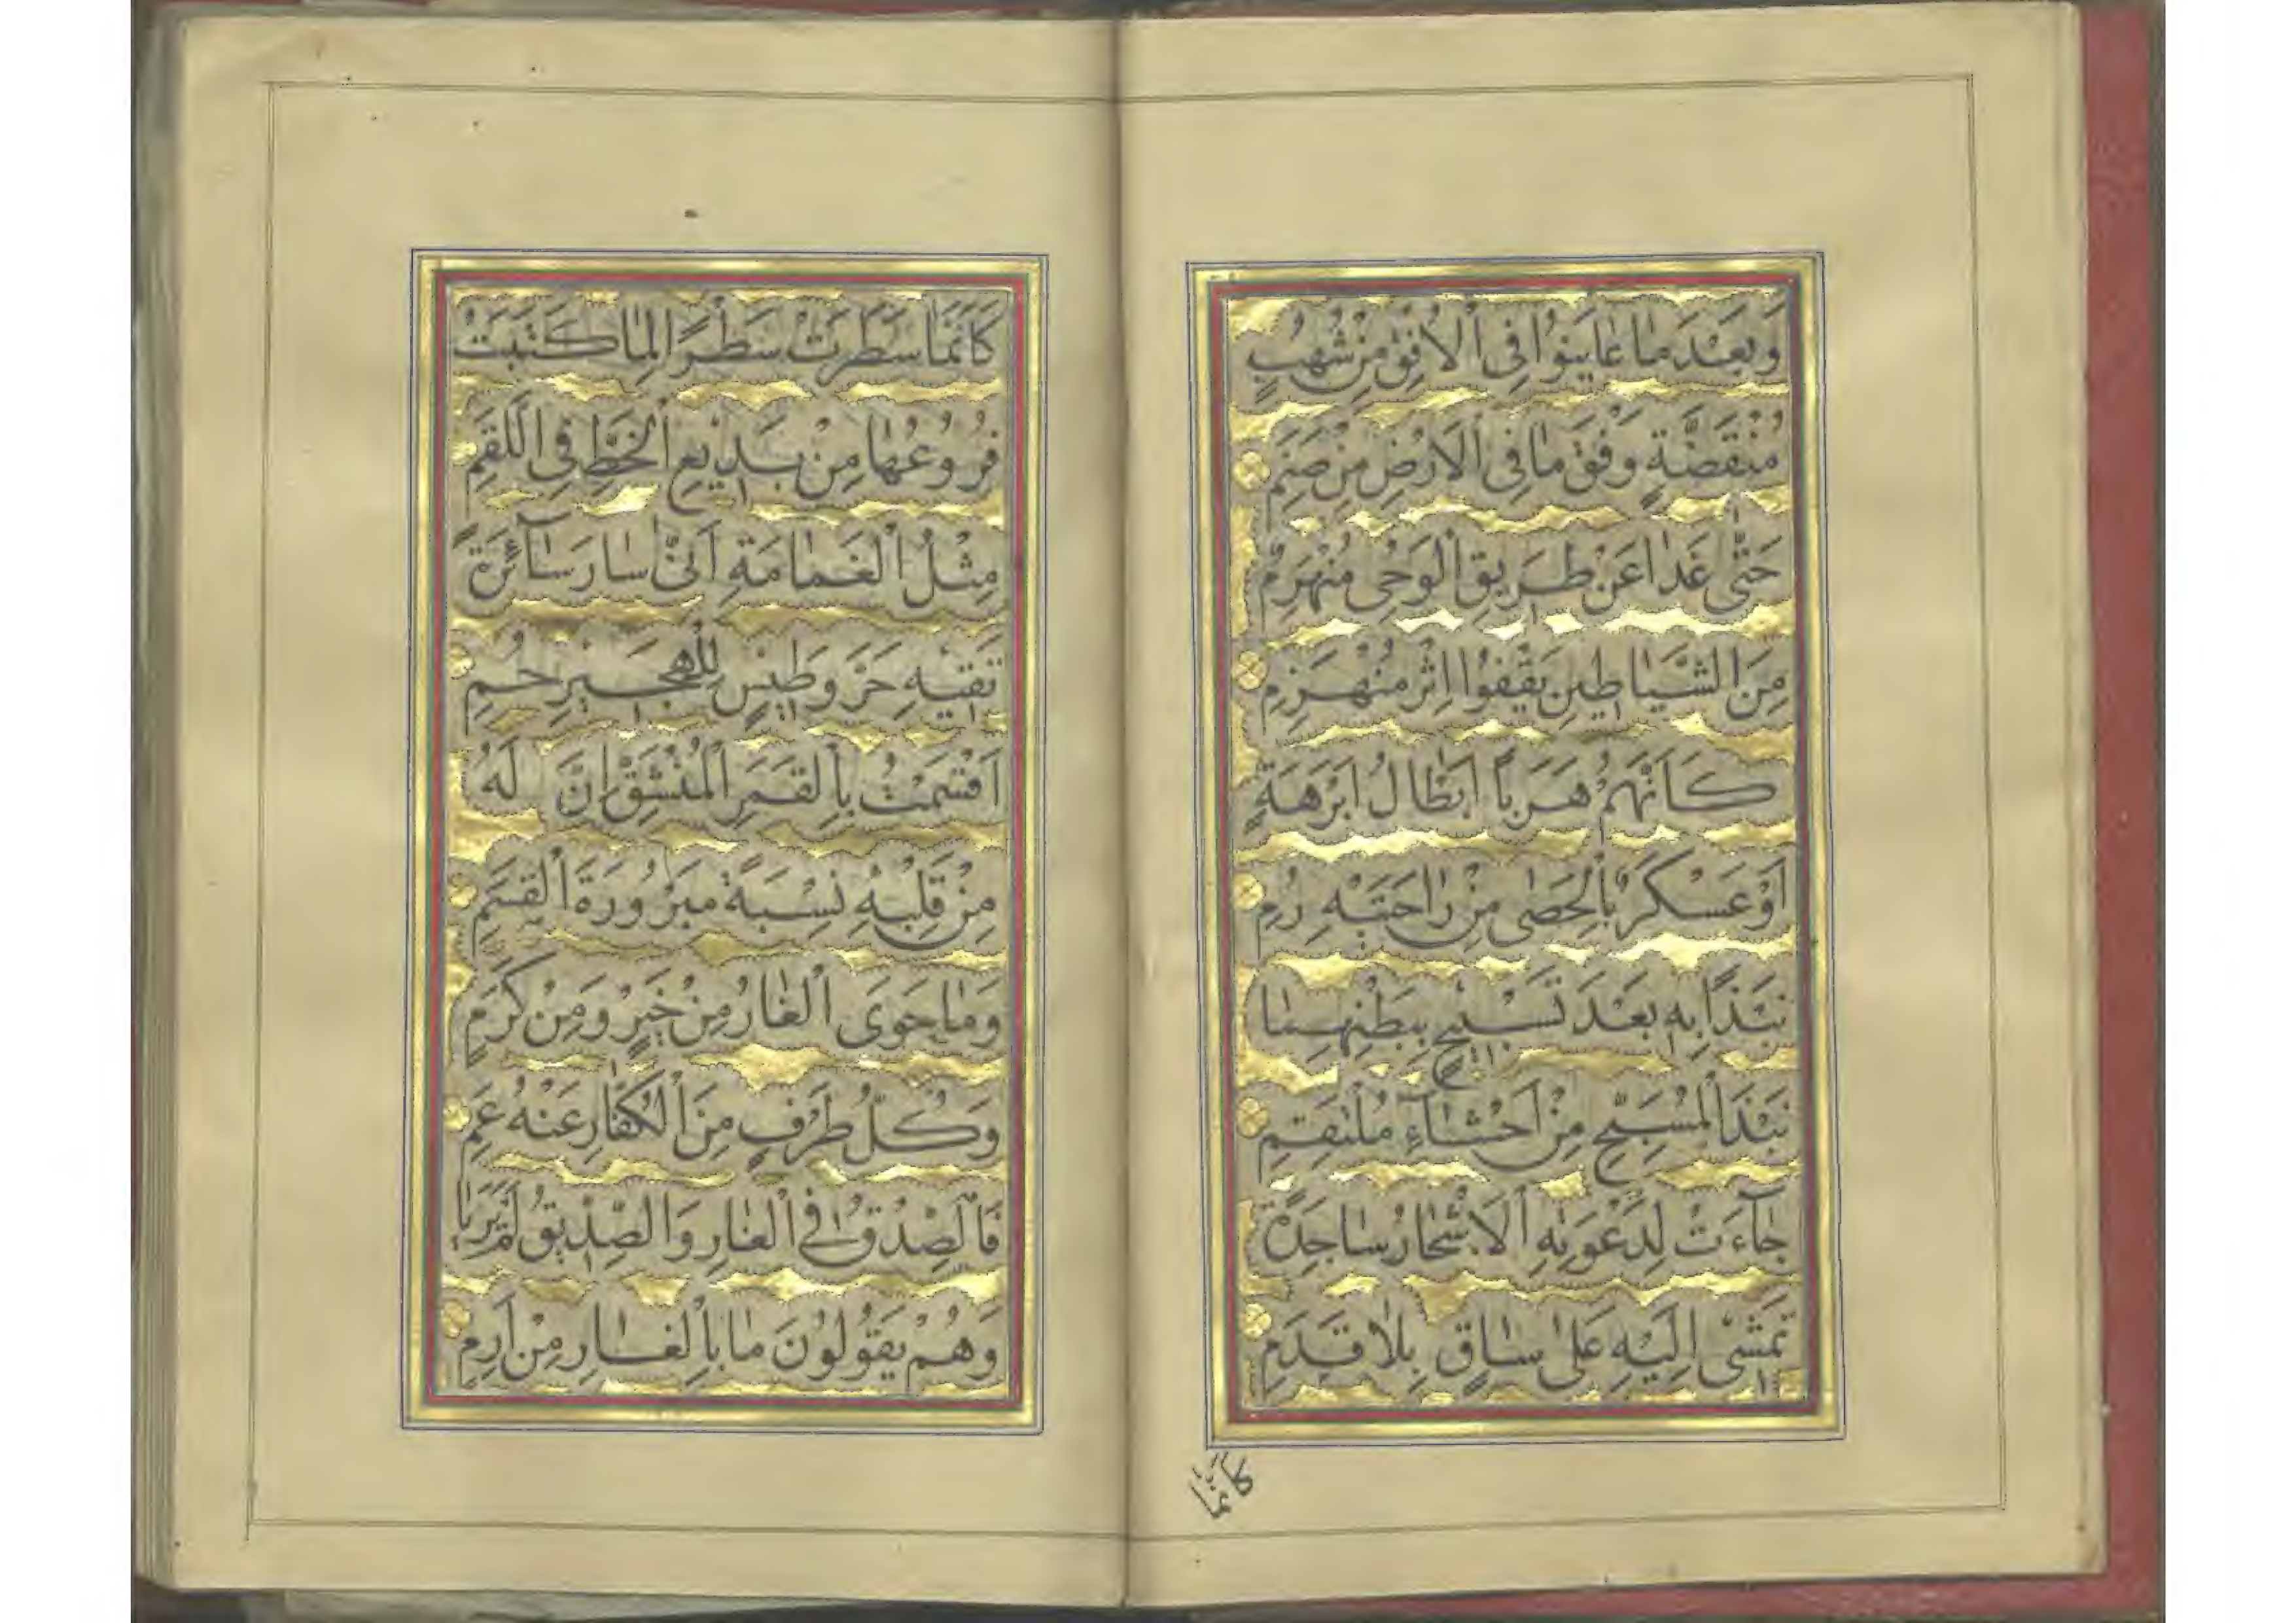 وَبَعْدَ مٰا عٰايَنُوا فِى الْاُفْقِ مِنْ شُهُبٍ
مُنْقَضَّةٍ وَفْقَ مٰا فِى الْاَرْضِ مِنْ صَنَمِ
حَتّٰى غَدٰا عَنْ طَرِيقِ الْوَحْىِ مُنْهَزِمٌ
مِنَ الشَّيٰاطِينِ يَقْفُوا اِثْرَ مُنْهَزِمِ
كَاَنَّهُمْ هَرَبًا اَبْطٰالُ اَبْرَهَةٍ
اَوْ عَسْكَرٌ بِالْحَصٰى مِنْ رٰاحَتَيْهِ رُمِ
نَبْذًا بِهِ بَعْدَ تَسْبِيحٍ بِبَطْنِهِمٰا
نَبْذَ الْمُسَبِّحِ مِنْ اَحْشٰآءِ مُلْتَقِمِ
جٰآءَتْ لِدَعْوَتِهِ الْاَشْجٰارُ سٰاجِدَةً
تَمْشٖى اِلَيْهِ عَلىٰ سٰاقٍ بِلٰا قَدَمِ
كَاَنَّمٰا
كَاَنَّمٰا سَطَرَتْ سَطْرًا لِمٰا كَتَبَتْ
فُرُوعُهٰا مِنْ بَدِيعِ الْخَطِّ فِى اللَّقَمِ
مِثْلُ الْغَمٰامَةِ اَنّٰى سٰارَ سٰآئِرَةً
تَقٖيهِ حَرَّ وَطِيسٍ لِلْهَجِيرِ حُمِ
اَقْسَمْتُ بِالْقَمَرِ الْمُنْشَقِّ اِنَّ لَهُ
مِنْ قَلْبِهِ نِسْبَةً مَبْرُورَةَ الْقَسَمِ
وَمٰا حَوَى الْغٰارُ مِنْ خَيْرٍ وَمِنْ كَرَمٍ
وَكُلُّ طَرْفٍ مِنَ الْكُفّٰارِ عَنْهُ عَمِ
فَالصِّدْقُ فِى الْغٰارِ وَالصِّدّٖيقُ لَمْ يَرِيٰا
وَهُمْ يَقُولُونَ مٰا بِالْغٰارِ مِنْ اَرِمِ